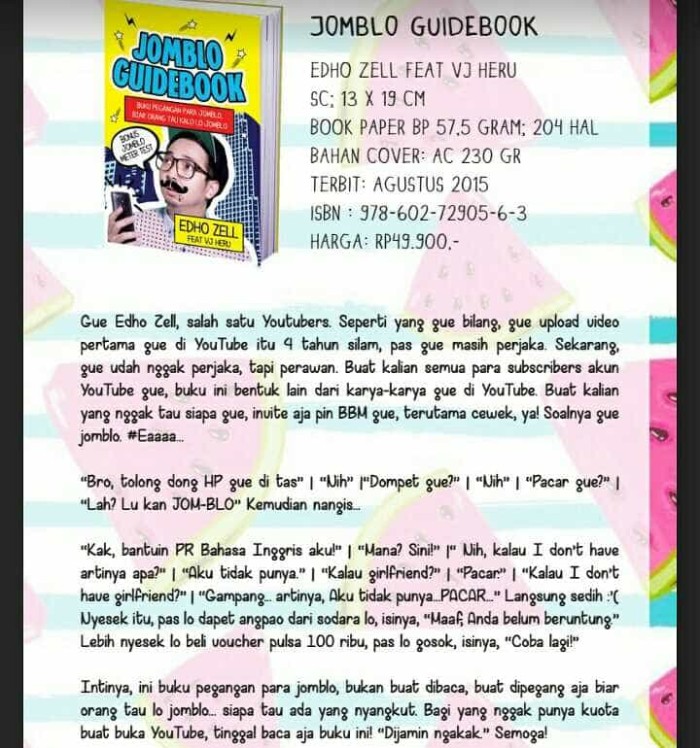 JOMBLO
GUIDEBOOK
BUKU PEGANGAN PARA JOMBLO,
BIAR ORANG TAU KALO LO JOMBLO
BONUS
JOMBLO
METER TEST
EDHO ZELL
FEAT VJ HERU
JOMBLO GUIDEBOOK
EDHO ZELL FEAT VJ HERU
SC; 13 X 19 CM
BOOK PAPER BP 57,5 GRAM; 204 HAL
BAHAN COVER: AC 230 GR
TERBIT: AGUSTUS 2015
ISBN : 978-602-72905-6-3
HARGA: RP49.900,-
Gue Edho Zell, salah satu Youtubers. Seperti yang gue bilang, gue upload video
pertama gue di YouTube itu 4 tahun silam, pas gue masih perjaka. Sekarang,
gue udah nggak perjaka, tapi perawan. Buat kalian semua para subscribers akun
YouTube gue, buku ini bentuk lain dari karya-karya gue di YouTube. Buat kalian
yang nggak tau siapa gue, invite aja pin BBM gue, terutama cewek, ya! Soalnya gue
jomblo. #Eaaaa...
"Bro, tolong dong HP gue di tas" | "Nih" |"Dompet gue?" | "Nih" | "Pacar gue?" |
"Lah? Lu kan JOM-BLO" Kemudian nangis...
"Kak, bantuin PR Bahasa Inggris aku!" | "Mana? Sini!" |" Nih, kalau I don't have
artinya apa?" | "Aku tidak punya." | "Kalau girlfriend?" | "Pacar." | "Kalau I don't
have girlfriend?" | "Gampang... artinya, Aku tidak punya...PACAR..." Langsung sedih :'(
Nyesek itu, pas lo dapet angpao dari sodara lo, isinya, "Maaf, Anda belum beruntung."
Lebih nyesek lo beli voucher pulsa 100 ribu, pas lo gosok, isinya, "Coba lagi!"
Intinya, ini buku pegangan para jomblo, bukan buat dibaca, buat dipegang aja biar
orang tau lo jomblo... siapa tau ada yang nyangkut. Bagi yang nggak punya kuota
buat buka YouTube, tinggal baca aja buku ini! "Dijamin ngakak." Semoga!